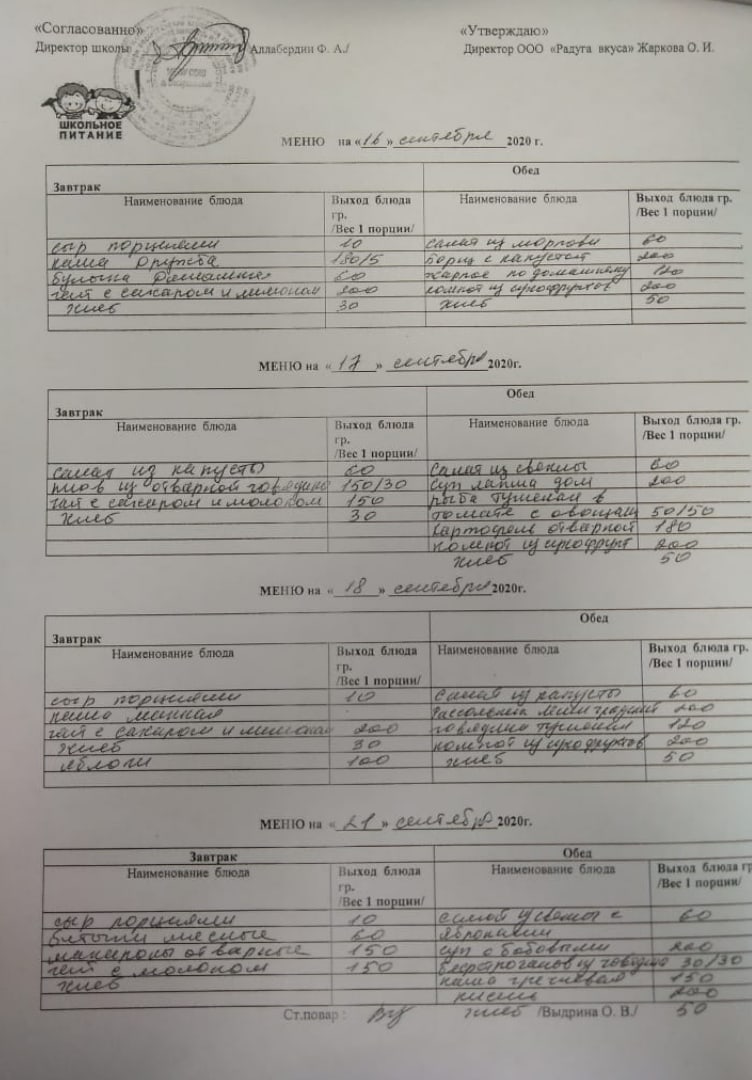 «Согласованно» «Утверждаю»
Директор школы Аллабердин Ф. А./ Директор ООО «Радуга вкуса» Жаркова О. И.
ШКОЛЬНОЕ
ПИТАНИЕ
МЕНЮ на «16» сентября 2020 г.
Обед
Завтрак
Наименование блюда Выход блюда гр. /Вес 1 порции/ Наименование блюда Выход блюда гр. /Вес 1 порции/
сыр порциями 10 салат из моркови 60
каша Дружба 180/5 борщ с капустой 200
булочка Домашняя 60 жаркое по домашнему 120
чай с сахаром и лимоном 200 компот из сухофруктов 200
хлеб 30 хлеб 50
МЕНЮ на «17» сентября 2020г.
Обед
Завтрак
Наименование блюда Выход блюда гр. /Вес 1 порции/ Наименование блюда Выход блюда гр. /Вес 1 порции/
салат из капусты 60 салат из свеклы 60
плов из отварной говядины 150/30 суп лапша дом 200
чай с сахаром и молоком 150 рыба тушеная в
хлеб 30 томате с овощами 50/50
картофель отварной 180
компот из сухофрукт 200
хлеб 50
МЕНЮ на «18» сентября 2020г.
Обед
Завтрак
Наименование блюда Выход блюда гр. /Вес 1 порции/ Наименование блюда Выход блюда гр. /Вес 1 порции/
сыр порциями 10 салат из капусты 60
каша манная рассольник ленинградский 200
чай с сахаром и лимоном 200 говядина тушеная 120
хлеб 30 компот из сухофруктов 200
яблоки 100 хлеб 50
МЕНЮ на «21» сентября 2020г.
Завтрак Обед
Наименование блюда Выход блюда гр. /Вес 1 порции/ Наименование блюда Выход блюда гр /Вес 1 порции/
сыр порциями 10 салат из свеклы с 60
биточки мясные 60 яблоками
макароны отварные 150 суп с бобовыми 200
чай с молоком 150 бефстроганов из говядины 30/30
хлеб каша гречневая 150
кисель 200
Ст.повар : хлеб /Выдрина О. В./ 50